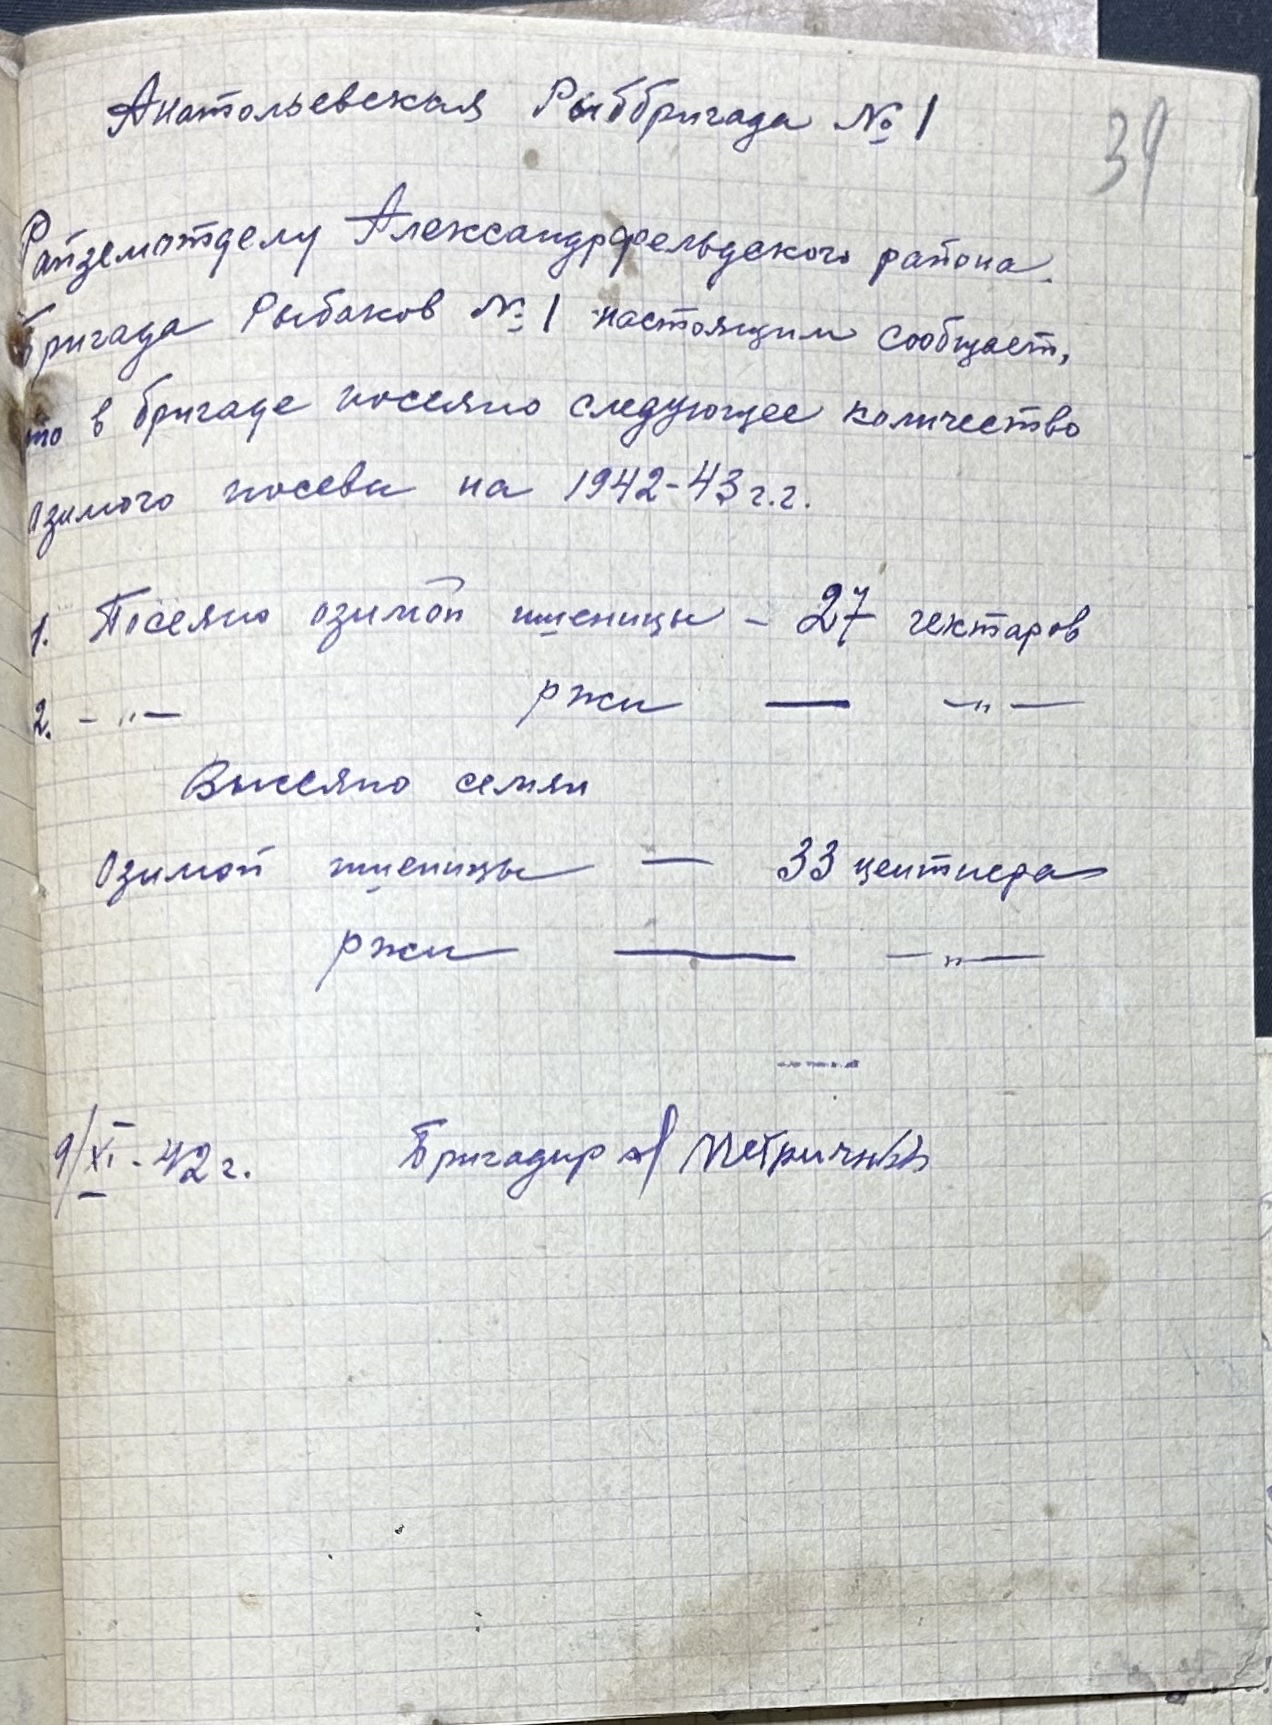 Анатольевская Рыббригада № 1
39
Райземотделу Александрфельдского района.
Бригада Рыбаков № 1 настоящим сообщает,
что в бригаде посеяно следующее количество
озимого посева на 1942-43 г.г.
1. Посеяно озимой пшеницы – 27 гектаров
2. – " – ржи — – " –
Высеяно семян
Озимой пшеницы — 33 центнера
ржи — – " –
9/XI - 42 г. Бригадир